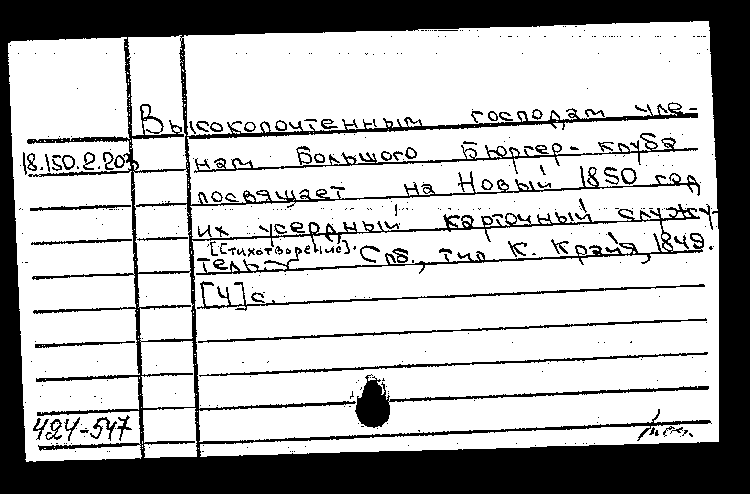 Высокопочтенным господам чле-
18.150.2.203 нам Большого Бюргер-клуба
посвящает на Новый 1850 год
их усердный карточный служи-
[Стихотворение].
тель. Спб., тип К. Крайя, 1849.
[4] с.
424-547